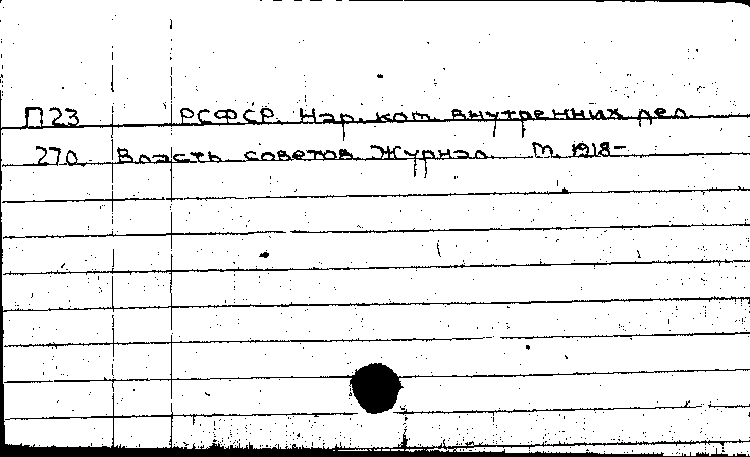 П23 РСФСР. Нар. ком. внутренних дел
270. Власть советов. Журнал. М. 1918-